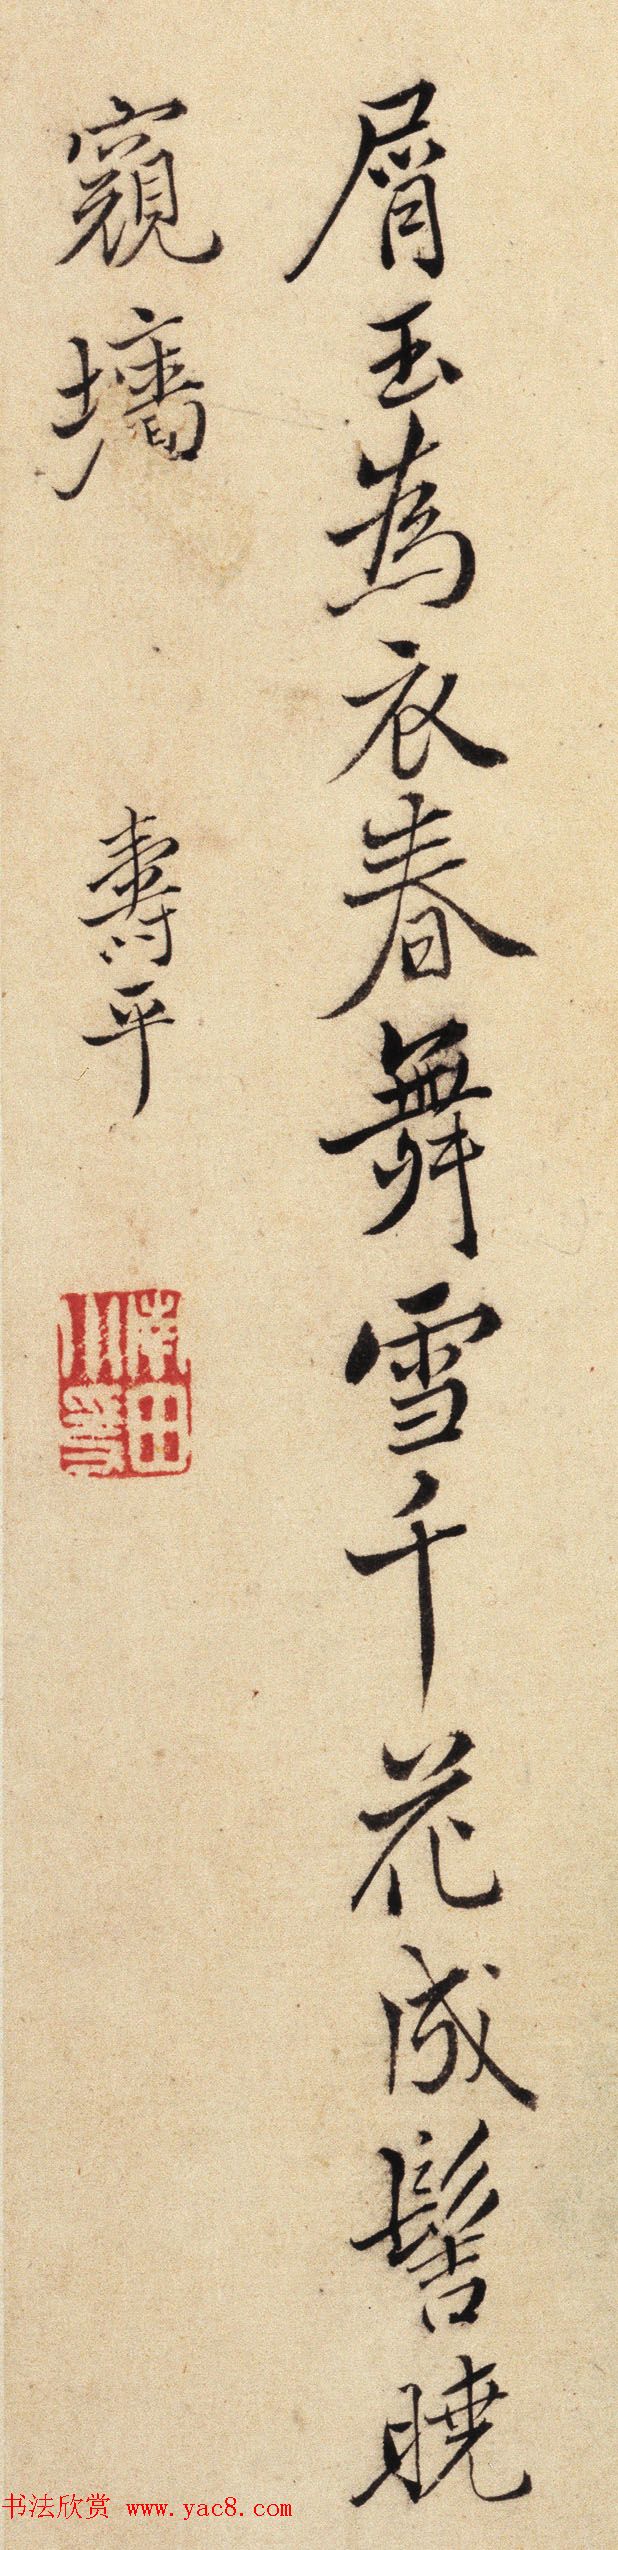 屑玉為衣春舞雪千花成髻曉
窺墻
壽平
書法欣賞 www.yac8.com